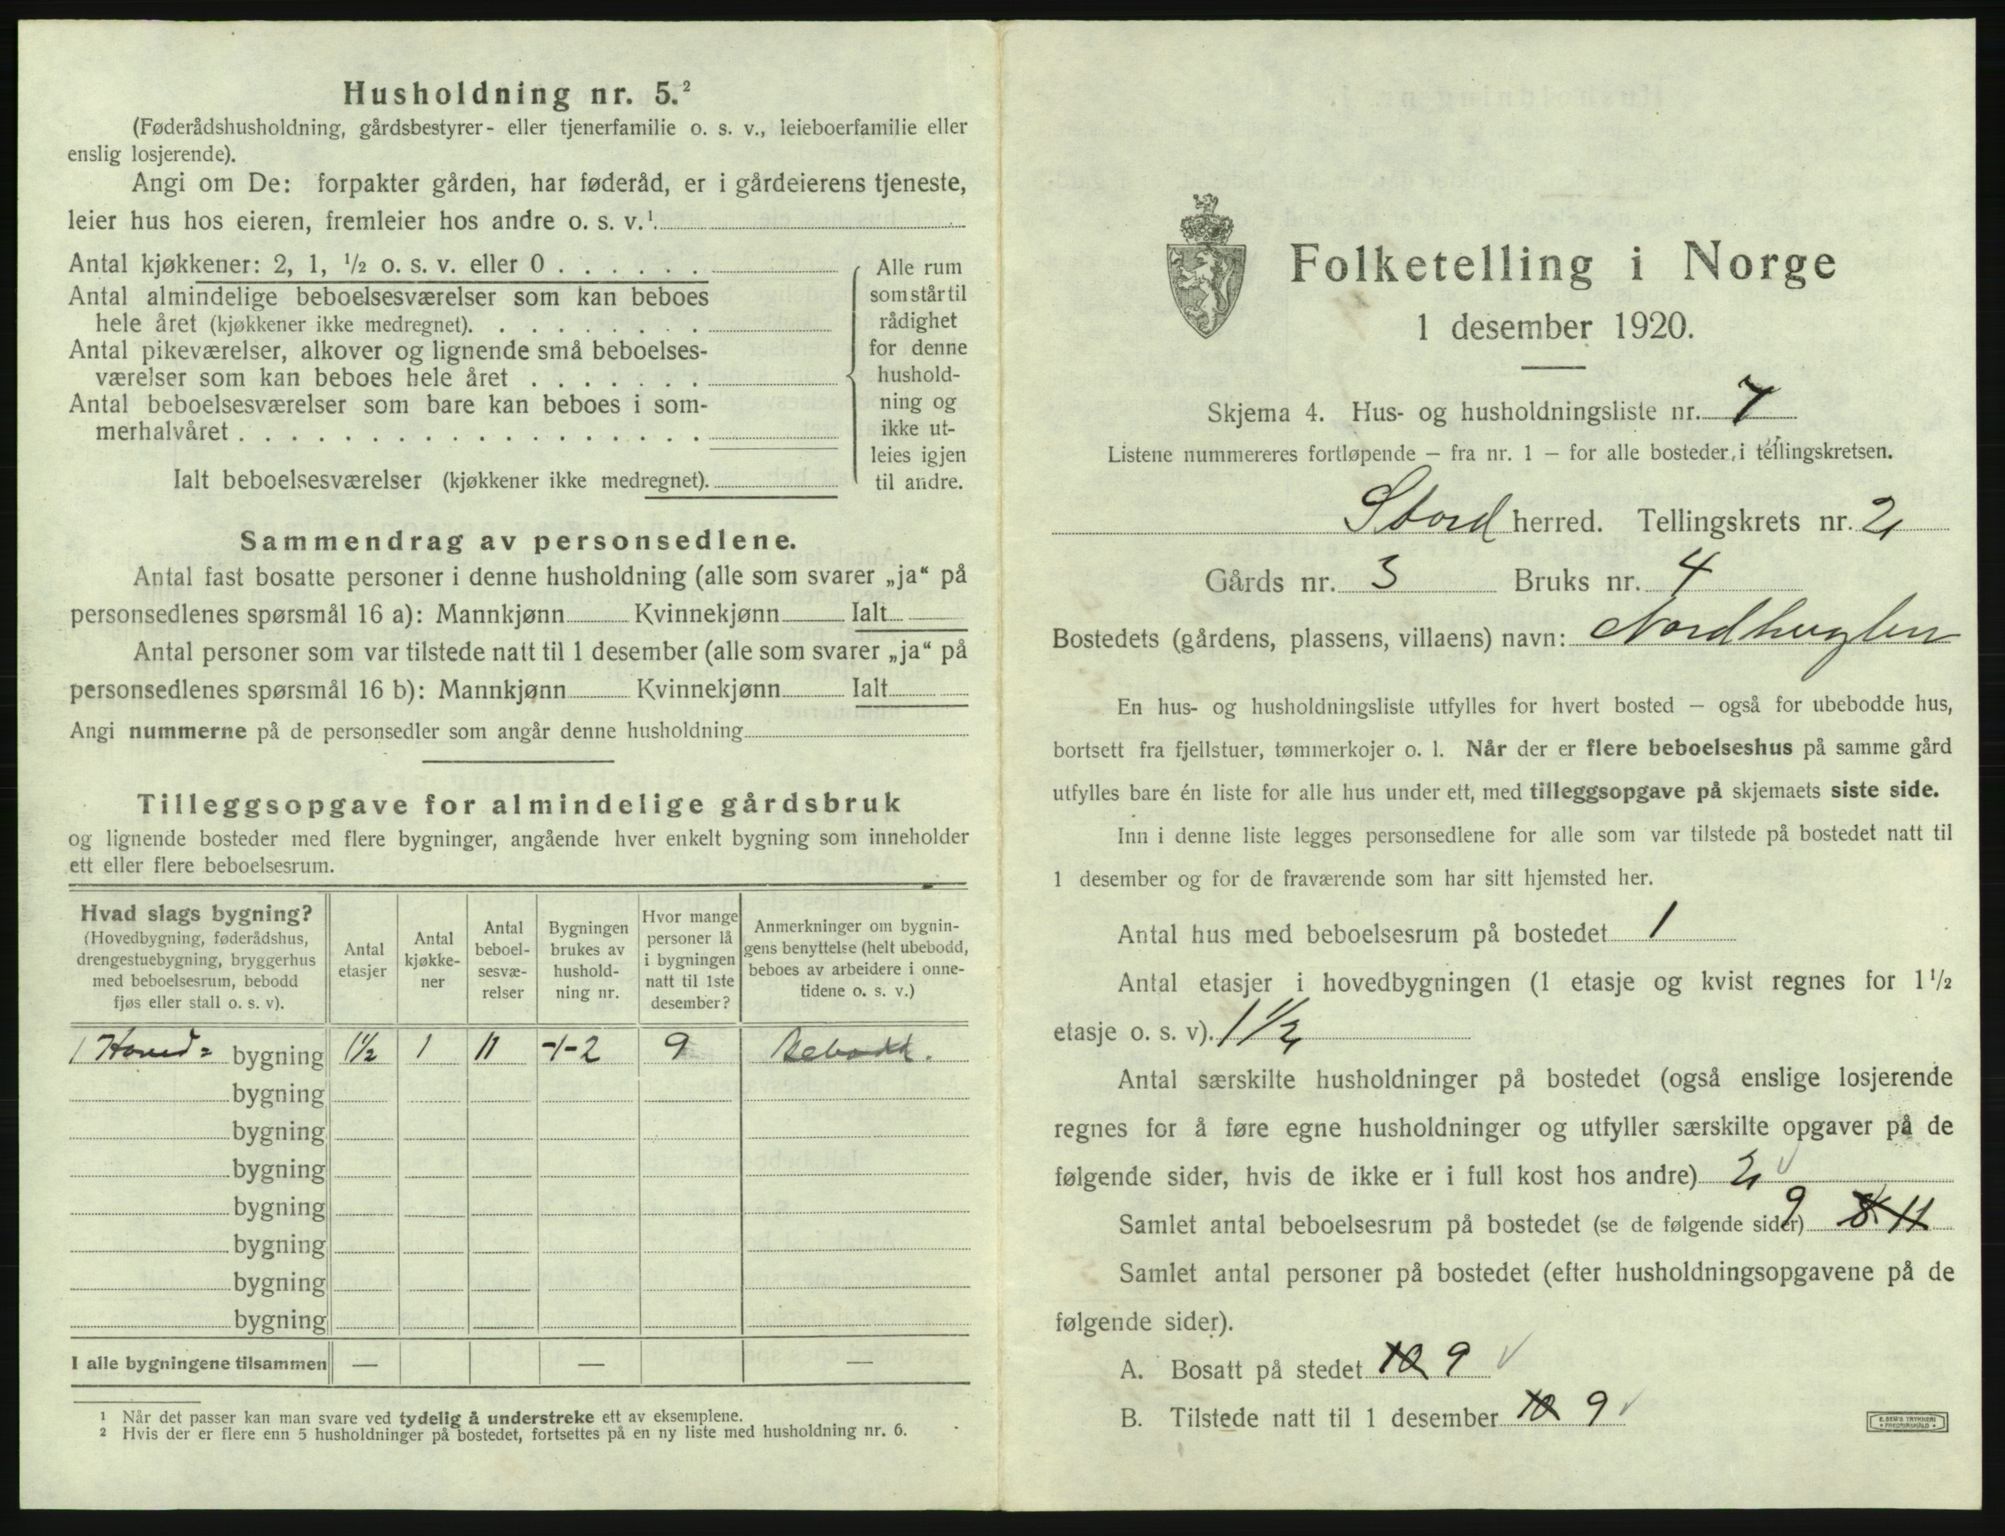 Husholdning nr. 5.²
(Føderådshusholdning, gårdsbestyrer- eller tjenerfamilie o. s. v., leieboerfamilie eller
enslig losjerende).
Angi om De: forpakter gården, har føderåd, er i gårdeierens tjeneste,
leier hus hos eieren, fremleier hos andre o. s. v.¹
Antal kjøkkener: 2, 1, ½ o. s. v. eller 0 . . . . . .
Antal almindelige beboelsesværelser som kan beboes
hele året (kjøkkener ikke medregnet). . . . . . . . .
Antal pikeværelser, alkover og lignende små beboelses-
værelser som kan beboes hele året . . . . . . .
Antal beboelsesværelser som bare kan beboes i som-
merhalvåret . . . . . . . . . . . . . . . . . .
Alle rum
som står til
rådighet
for denne
hushold-
ning og
ikke ut-
leies igjen
til andre.
Ialt beboelsesværelser (kjøkkener ikke medregnet).
Sammendrag av personsedlene.
Antal fast bosatte personer i denne husholdning (alle som svarer „ja“ på
personsedlenes spørsmål 16 a): Mannkjønn Kvinnekjønn Ialt
Antal personer som var tilstede natt til 1 desember (alle som svarer „ja“ på
personsedlenes spørsmål 16 b): Mannkjønn Kvinnekjønn Ialt
Angi nummerne på de personsedler som angår denne husholdning
Tilleggsopgave for almindelige gårdsbruk
og lignende bosteder med flere bygninger, angående hver enkelt bygning som inneholder
ett eller flere beboelsesrum.
Hvad slags bygning?
(Hovedbygning, føderådshus,
drengestuebygning, bryggerhus
med beboelsesrum, bebodd
fjøs eller stall o. s. v).
Antal
etasjer
Antal
kjøkke-
ner
Antal
beboel-
sesvæ-
relser
Bygningen
brukes av
hushold-
ning nr.
Hvor mange
personer lå
i bygningen
natt til 1ste
desember?
Anmerkninger om bygnin-
gens benyttelse (helt ubebodd,
beboes av arbeidere i onne-
tidene o. s. v.)
1 Hoved= bygning 1½ 1 11 -1-2 9 Bebodd.
bygning
bygning
bygning
bygning
bygning
bygning
bygning
I alle bygningene tilsammen — — —
¹ Når det passer kan man svare ved tydelig å understreke ett av eksemplene.
² Hvis der er flere enn 5 husholdninger på bostedet, fortsettes på en ny liste med husholdning nr. 6.
Folketelling i Norge
1 desember 1920.
Skjema 4. Hus- og husholdningsliste nr. 7
Listene nummereres fortløpende – fra nr. 1 – for alle bosteder i tellingskretsen.
Stord herred. Tellingskrets nr. 2
Gårds nr. 3 Bruks nr. 4
Bostedets (gårdens, plassens, villaens) navn: Nordhuglen
En hus- og husholdningsliste utfylles for hvert bosted – også for ubebodde hus,
bortsett fra fjellstuer, tømmerkojer o. l. Når der er flere beboelseshus på samme gård
utfylles bare én liste for alle hus under ett, med tilleggsopgave på skjemaets siste side.
Inn i denne liste legges personsedlene for alle som var tilstede på bostedet natt til
1 desember og for de fraværende som har sitt hjemsted her.
Antal hus med beboelsesrum på bostedet 1
Antal etasjer i hovedbygningen (1 etasje og kvist regnes for 1½
etasje o. s. v). 1½
Antal særskilte husholdninger på bostedet (også enslige losjerende
regnes for å føre egne husholdninger og utfyller særskilte opgaver på de
følgende sider, hvis de ikke er i full kost hos andre) 2
Samlet antal beboelsesrum på bostedet (se de følgende sider) 9 8 11
Samlet antal personer på bostedet (efter husholdningsopgavene på de
følgende sider).
A. Bosatt på stedet 10 9
B. Tilstede natt til 1 desember 10 9
E. SEM'S TRYKKERI
FREDRIKSHALD